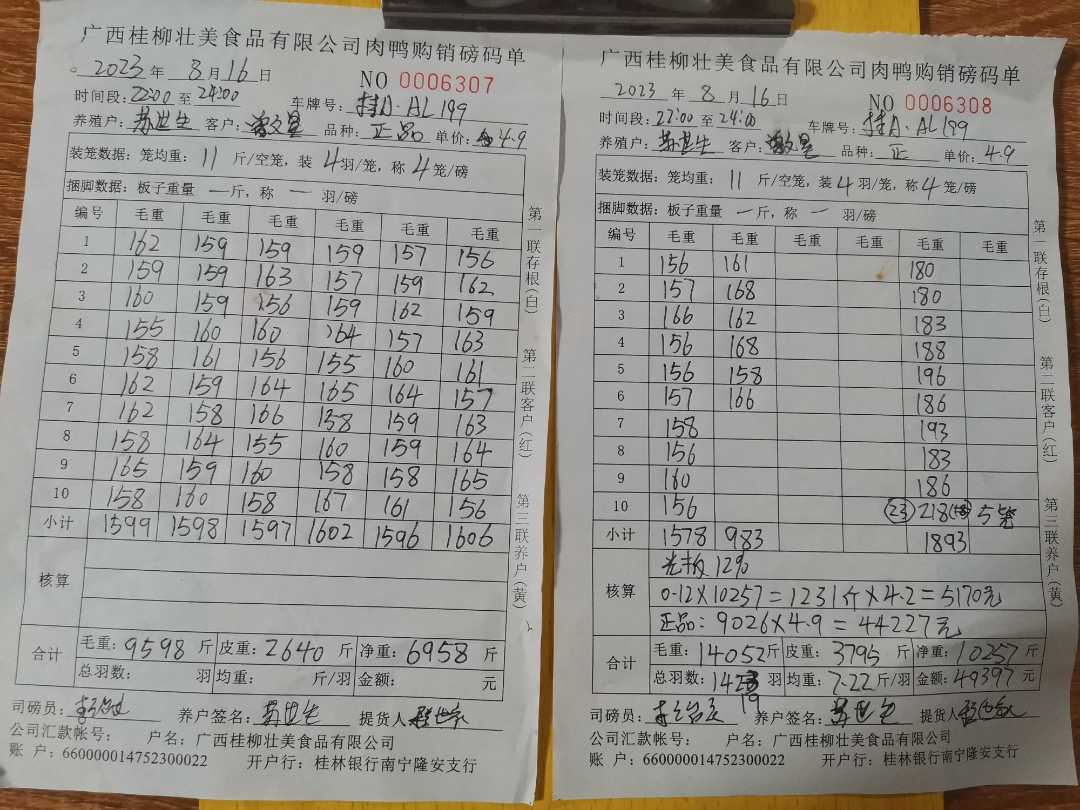 广西桂柳壮美食品有限公司肉鸭购销磅码单
2023 年 8 月 16 日 NO 0006307
时间段: 22:00 至 24:00 车牌号: 桂A·AL199
养殖户: 苏世生 客户: 品种: 正品 单价: 4.9
装笼数据: 笼均重: 11 斤/空笼, 装 4 羽/笼, 称 4 笼/磅
捆脚数据: 板子重量 一 斤, 称 一 羽/磅
编号 毛重 毛重 毛重 毛重 毛重 毛重
1 162 159 159 159 157 156
2 159 159 163 157 159 162
3 160 159 156 159 162 159
4 155 160 160 164 157 163
5 158 161 156 155 160 161
6 162 159 164 165 164 157
7 162 158 166 158 159 163
8 158 164 155 160 159 164
9 165 159 160 158 158 165
10 158 160 158 167 161 156
小计 1599 1598 1597 1602 1596 1606
核算
合计 毛重: 9598 斤 皮重: 2640 斤 净重: 6958 斤
总羽数: 羽 均重: 斤/羽 金额: 元
司磅员: 养户签名: 苏世生 提货人
公司汇款帐号: 户名: 广西桂柳壮美食品有限公司
账 户: 660000014752300022 开户行: 桂林银行南宁隆安支行
第一联存根(白)
第二联客户(红)
第三联养户(黄)
广西桂柳壮美食品有限公司肉鸭购销磅码单
2023 年 8 月 16 日 NO 0006308
时间段: 22:00 至 24:00 车牌号: 桂A·AL199
养殖户: 苏世生 客户: 品种: 正 单价: 4.9
装笼数据: 笼均重: 11 斤/空笼, 装 4 羽/笼, 称 4 笼/磅
捆脚数据: 板子重量 一 斤, 称 一 羽/磅
编号 毛重 毛重 毛重 毛重 毛重 毛重
1 156 161 180
2 157 168 180
3 166 162 183
4 156 168 188
5 156 158 196
6 157 166 186
7 158 193
8 156 183
9 160 186
10 156 23 218 5笼
小计 1578 983 1893
核算 光板 12%
0.12×10257=1231斤×4.2=5170元
正品: 9026×4.9=44227元
合计 毛重: 14052 斤 皮重: 3795 斤 净重: 10257 斤
总羽数: 羽 均重: 7.22 斤/羽 金额: 49397 元
司磅员: 养户签名: 苏世生 提货人
公司汇款帐号: 户名: 广西桂柳壮美食品有限公司
账 户: 660000014752300022 开户行: 桂林银行南宁隆安支行
第一联存根(白)
第二联客户(红)
第三联养户(黄)